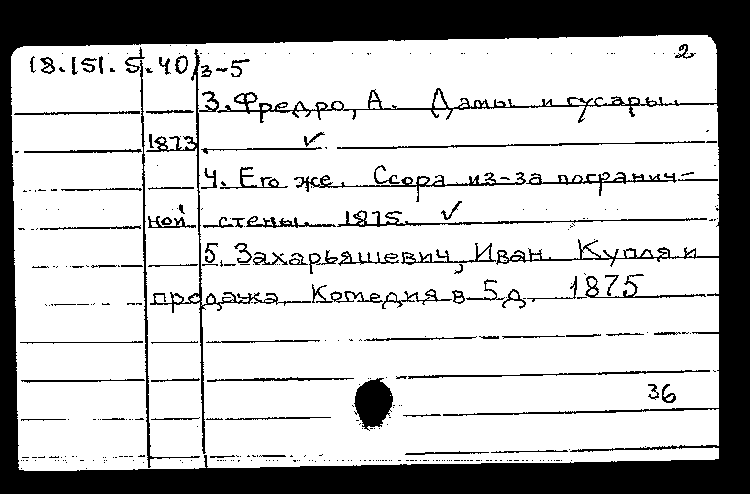 2
18.151.5.40/3-5
3. Фредро, А. Дамы и гусары.
1873. ✓
4. Его же. Ссора из-за погранич-
ной стены. 1875. ✓
5. Захарьяшевич, Иван. Купля и
продажа. Комедия в 5 д. 1875
36